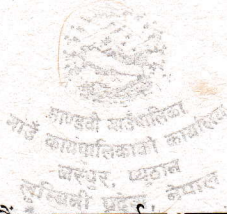 माण्डवी गाउँपालिका
गाउँ कार्यपालिकाको कार्यालय
जस्पुर, प्युठान
लुम्बिनी प्रदेश, नेपाल